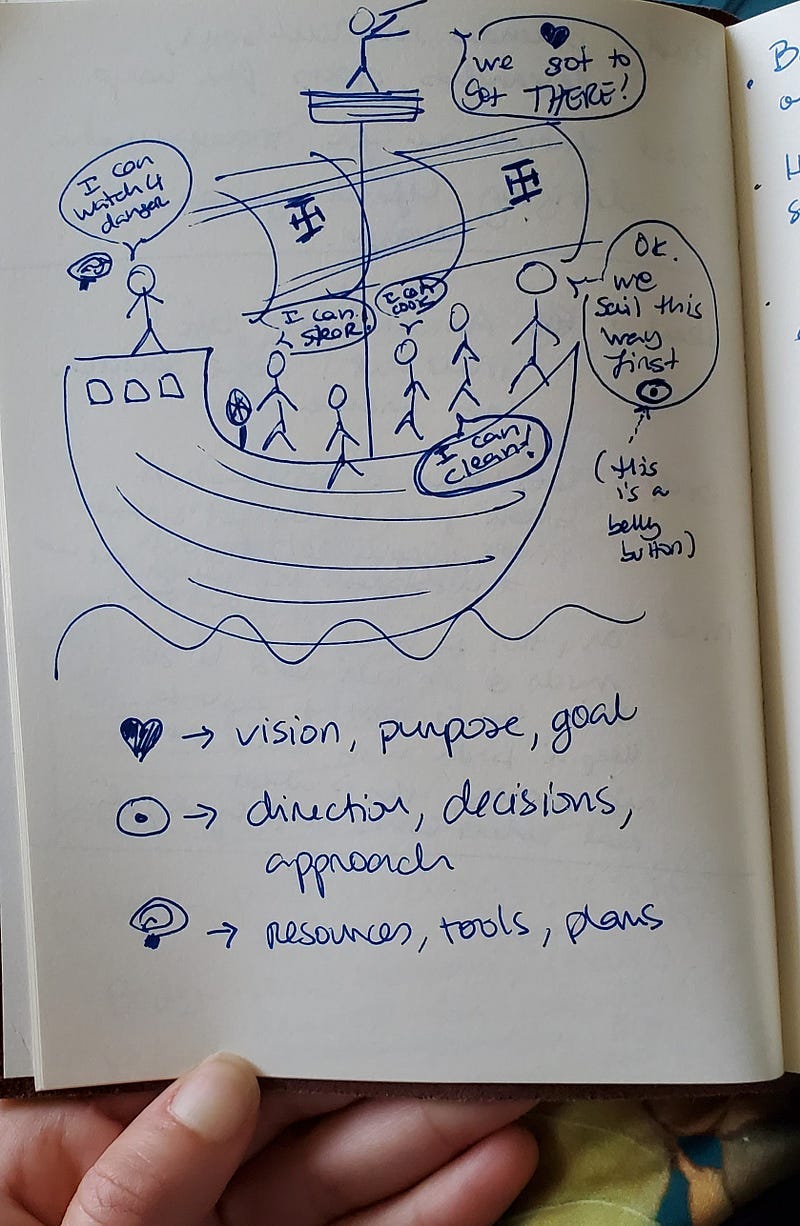 we got to
get THERE!
I can
watch 4
danger
OK.
we
sail this
way
first
I can
stear!
I can
cook
I can
clean!
(this
is a
belly
button)
→ vision, purpose, goal
→ direction, decisions,
approach
→ resources, tools, plans
B
o
H
s